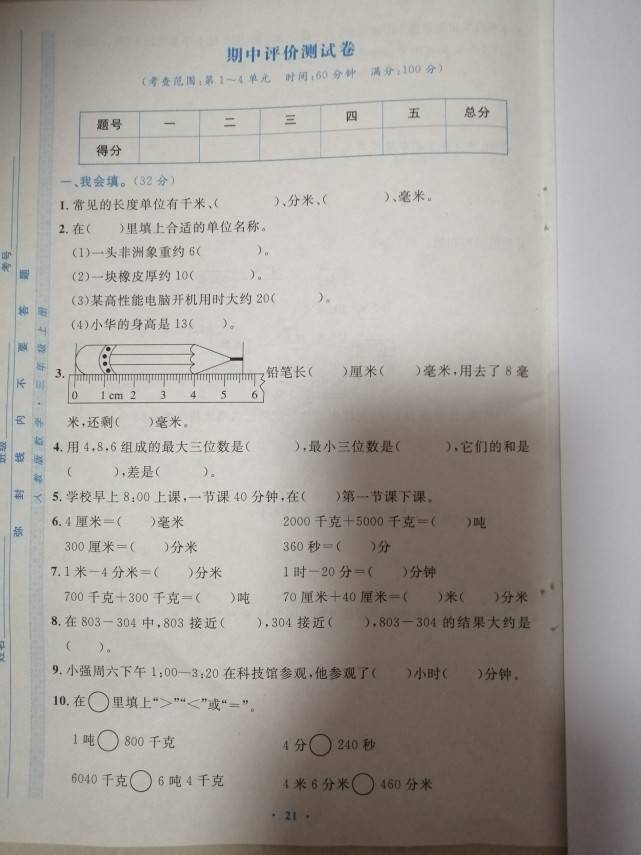 期中评价测试卷
(考查范围:第1～4单元 时间:60分钟 满分:100分)
题号 一 二 三 四 五 总分
得分
一、我会填。(32分)
1.常见的长度单位有千米、( )、分米、( )、毫米。
2.在( )里填上合适的单位名称。
(1)一头非洲象重约6( )。
(2)一块橡皮厚约10( )。
(3)某高性能电脑开机用时大约20( )。
(4)小华的身高是13( )。
0 1 cm 2 3 4 5 6
3. 铅笔长( )厘米( )毫米,用去了8毫
米,还剩( )毫米。
4.用4,8,6组成的最大三位数是( ),最小三位数是( ),它们的和是
( ),差是( )。
5.学校早上8:00上课,一节课40分钟,在( )第一节课下课。
6.4厘米=( )毫米 2000千克+5000千克=( )吨
300厘米=( )分米 360秒=( )分
7.1米-4分米=( )分米 1时-20分=( )分钟
700千克+300千克=( )吨 70厘米+40厘米=( )米( )分米
8.在803-304中,803接近( ),304接近( ),803-304的结果大约是
( )。
9.小强周六下午1:00—3:20在科技馆参观,他参观了( )小时( )分钟。
10.在○里填上“>”“<”或“=”。
1吨○800千克 4分○240秒
6040千克○6吨4千克 4米6分米○460分米
· 21 ·
人教版数学·三年级上册
弥封线内不要答题
考号
班级
姓名